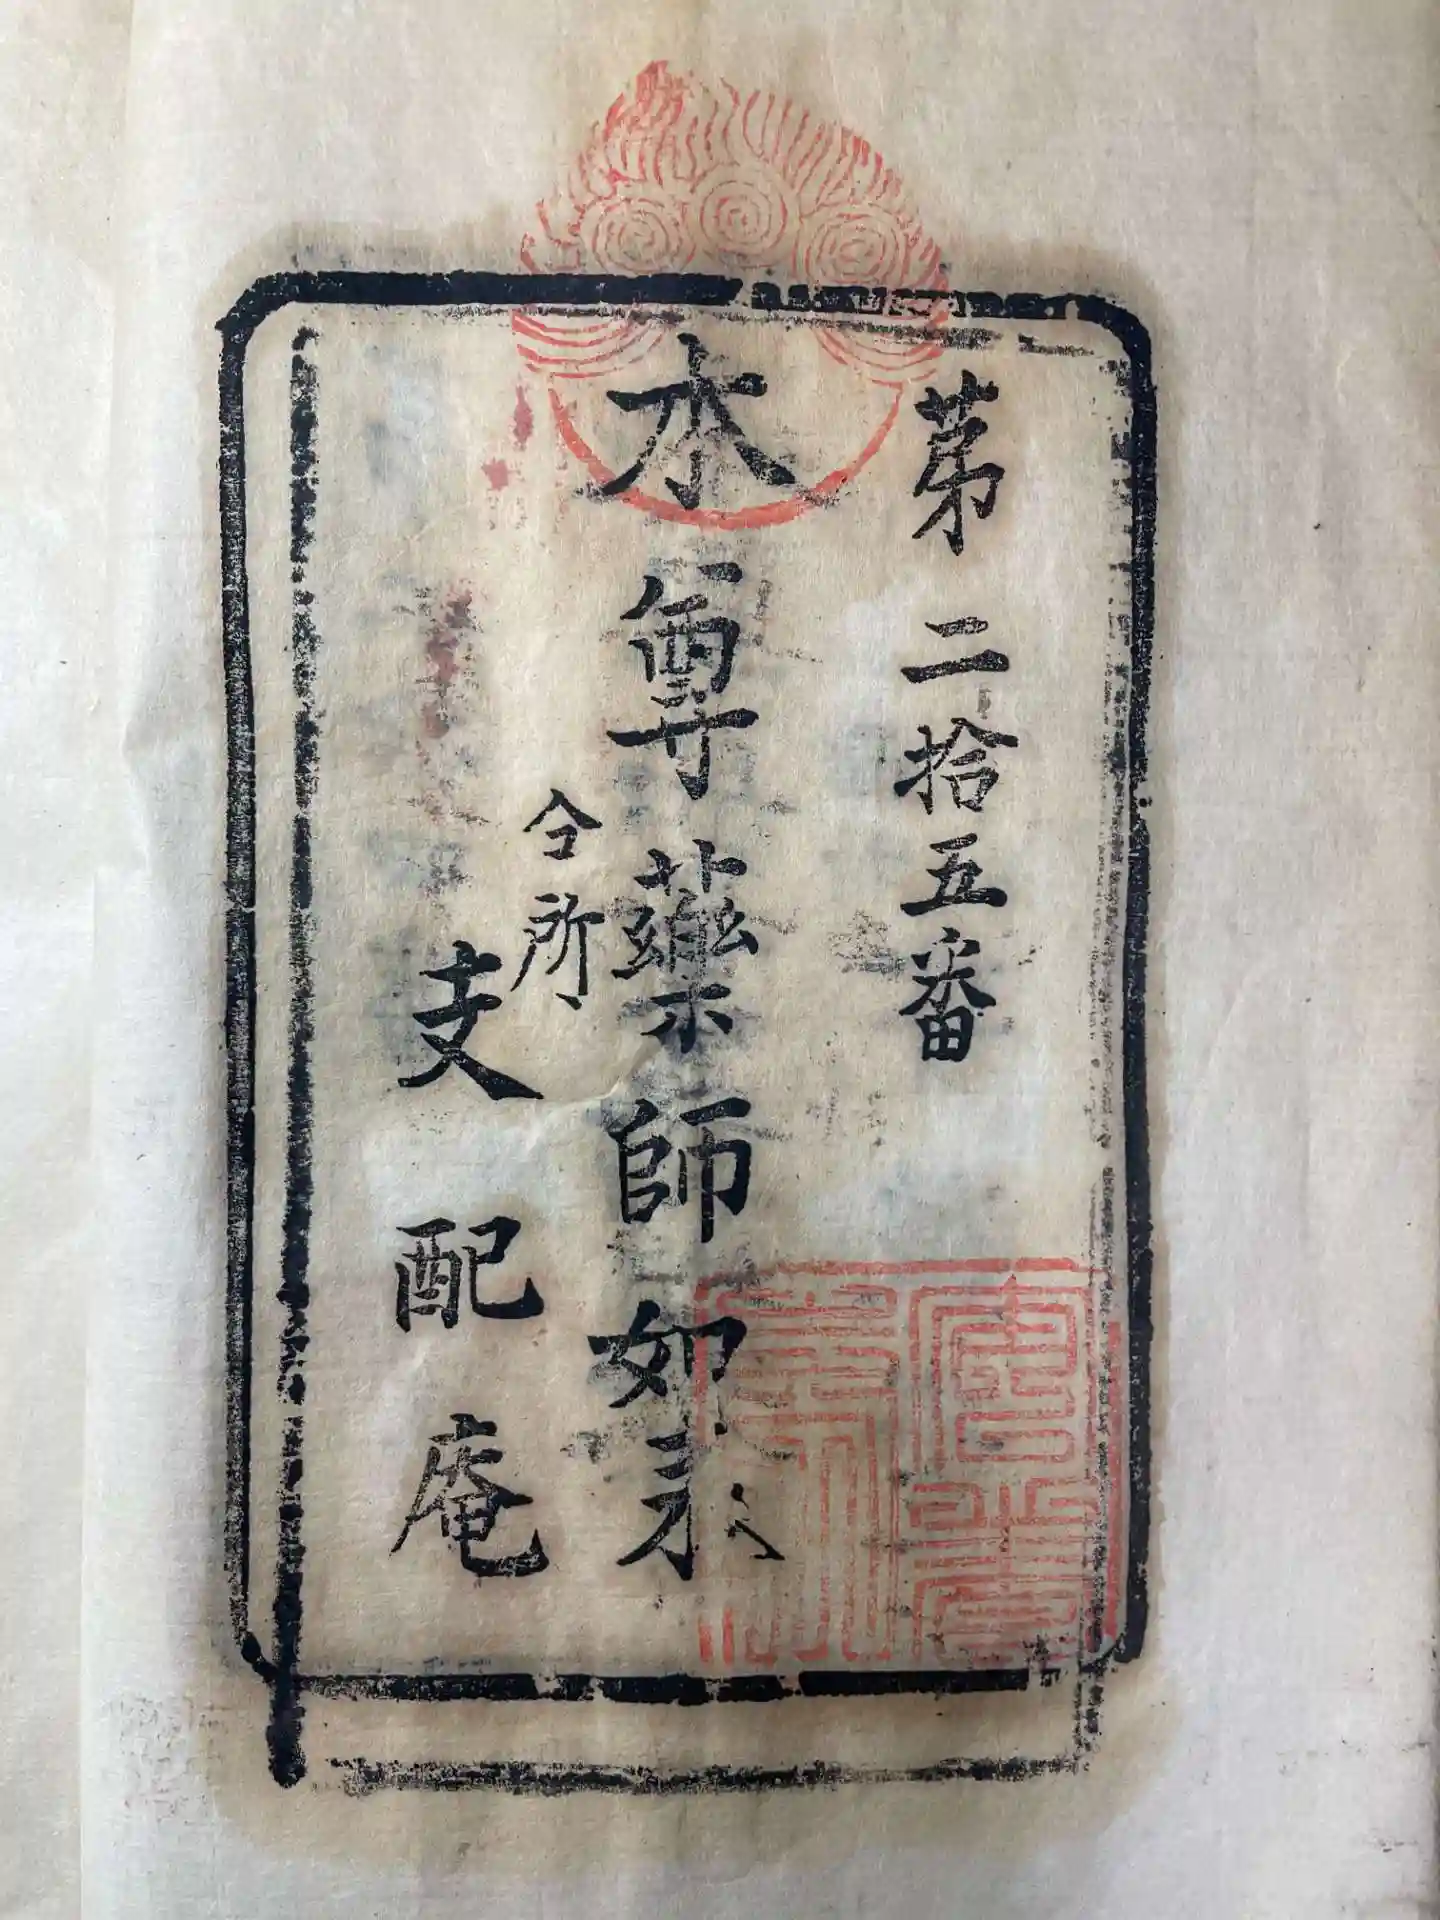 第二拾五番
本尊藥師如来
令所
支配庵